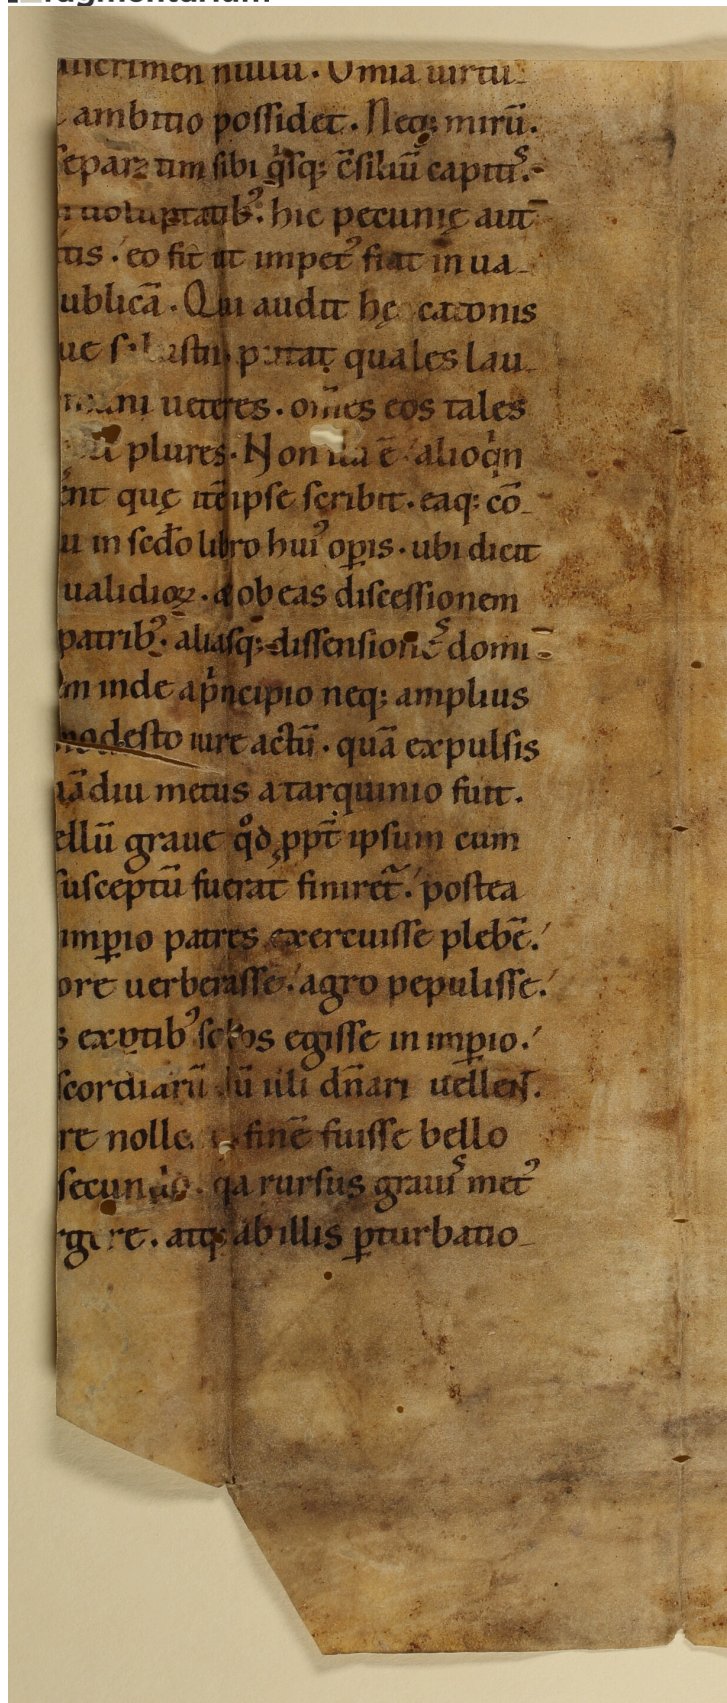 discrimen nullū. Om̄ia uirtu-
ambitio possidet. Neq; mirū.
separatim sibi q̇sq; c̄siliū capitis.
uoluptatib᾿. hic pecunię aut
tis. eo fit ut impet᾿ fiat in ua-
ublicā. Qui audit hęc catonis
ue salustii putat quales lau-
mani ueteres. om̄es eos tales
plures. Non ita ē. alioq̇n
ent quę itē ipse scribit. eaq; cō-
u in scd̄o libro hui᾿ op̱is. ubi dicit
ualidioꝝ. & ob eas discessionem
patrib᾿. aliasq; dissensiones domi
m inde a p̱ncipio neq; amplius
modesto iure actū. quā expulsis
uādiu metus a tarquinio fuit.
ellū graue qd̊ ꝓpt̄ ipsum cum
susceptū fuerat finiret᾿. postea
imp̱io patres exercuisse plebē.
ore uerberasse. agro pepulisse.
s ex̱ptib᾿ solos egisse in imp̱io.
scordiarū dū illi dn̄ari uellent.
re nolle finē fuisse bello
secundo. qa rursus grauis met᾿
rgere. atq; ab illis p̱turbatio-